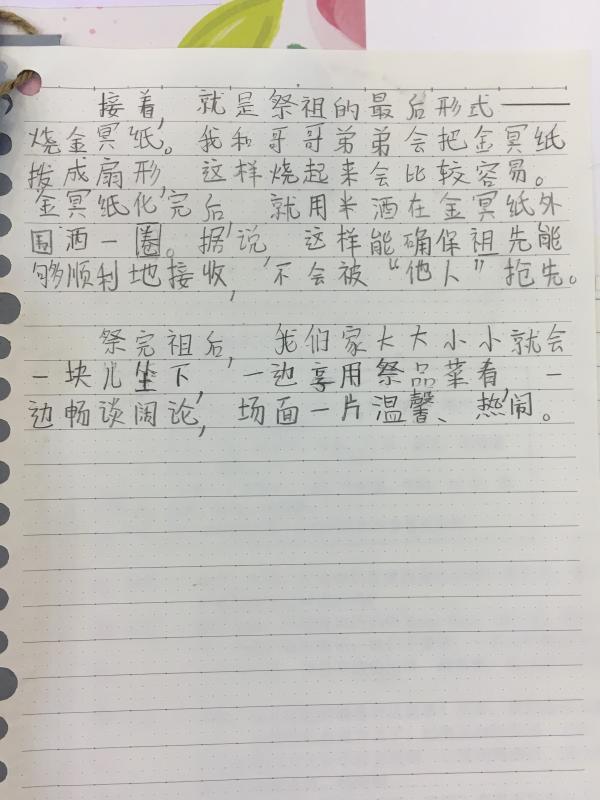 接着，就是祭祖的最后形式——
烧金冥纸。我和哥哥弟弟会把金冥纸
拨成扇形，这样烧起来会比较容易。
金冥纸化完后，就用米酒在金冥纸外
围洒一圈。据说，这样能确保祖先能
够顺利地接收，不会被“他人”抢先。
祭完祖后，我们家大大小小就会
一块儿坐下，一边享用祭品菜肴，一
边畅谈阔论，场面一片温馨、热闹。